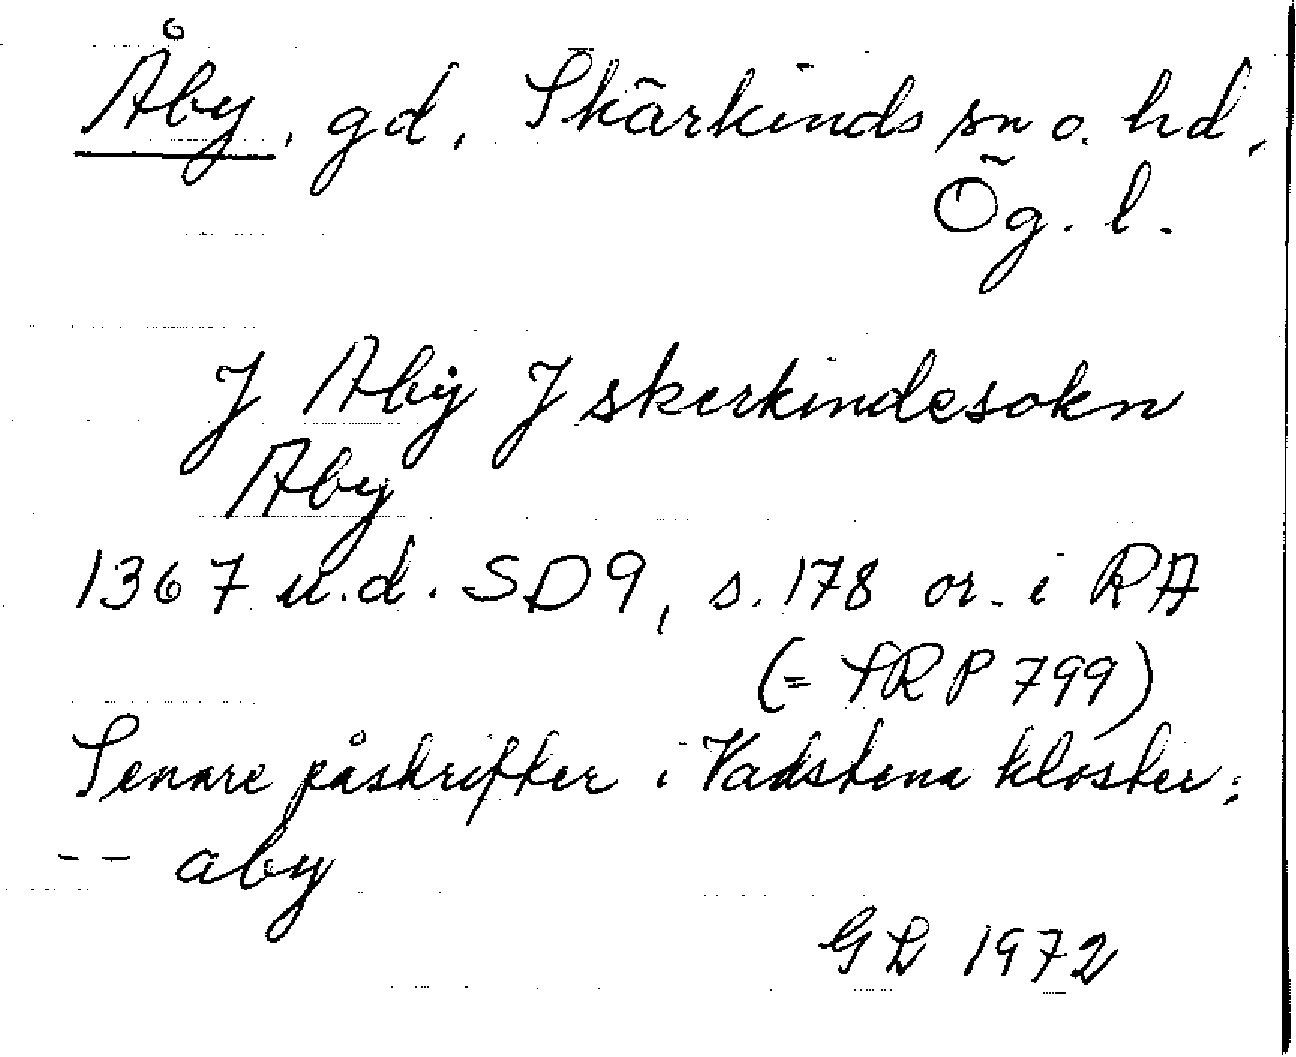 Åby, gd, Skärkinds sn o. hd,
Ög. l.
J Aby J skerkindesokn
Aby
1367 u.d. SD9, s. 178 or. i RA
(= SRP 799)
Senare påskrifter i Vadstena kloster:
-- aby
GL 1972